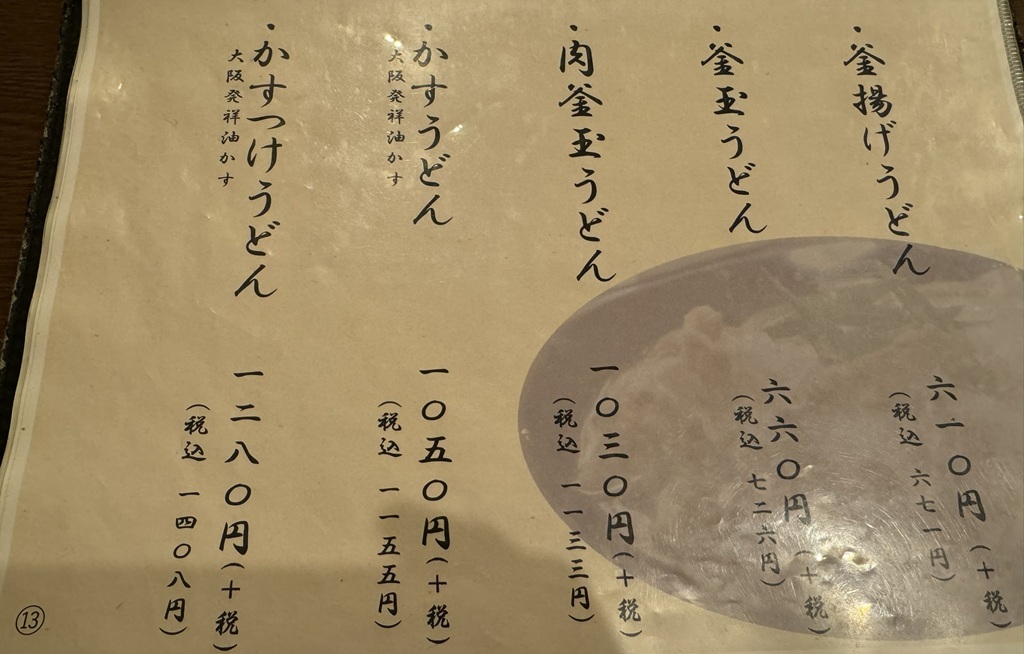 ・釜揚げうどん
六一〇円(+税)
(税込 六七一円)
・釜玉うどん
六六〇円(+税)
(税込 七二六円)
・肉釜玉うどん
一〇三〇円(+税)
(税込 一一三三円)
・かすうどん
大阪発祥油かす
一〇五〇円(+税)
(税込 一一五五円)
・かすつけうどん
大阪発祥油かす
一二八〇円(+税)
(税込 一四〇八円)
⑬